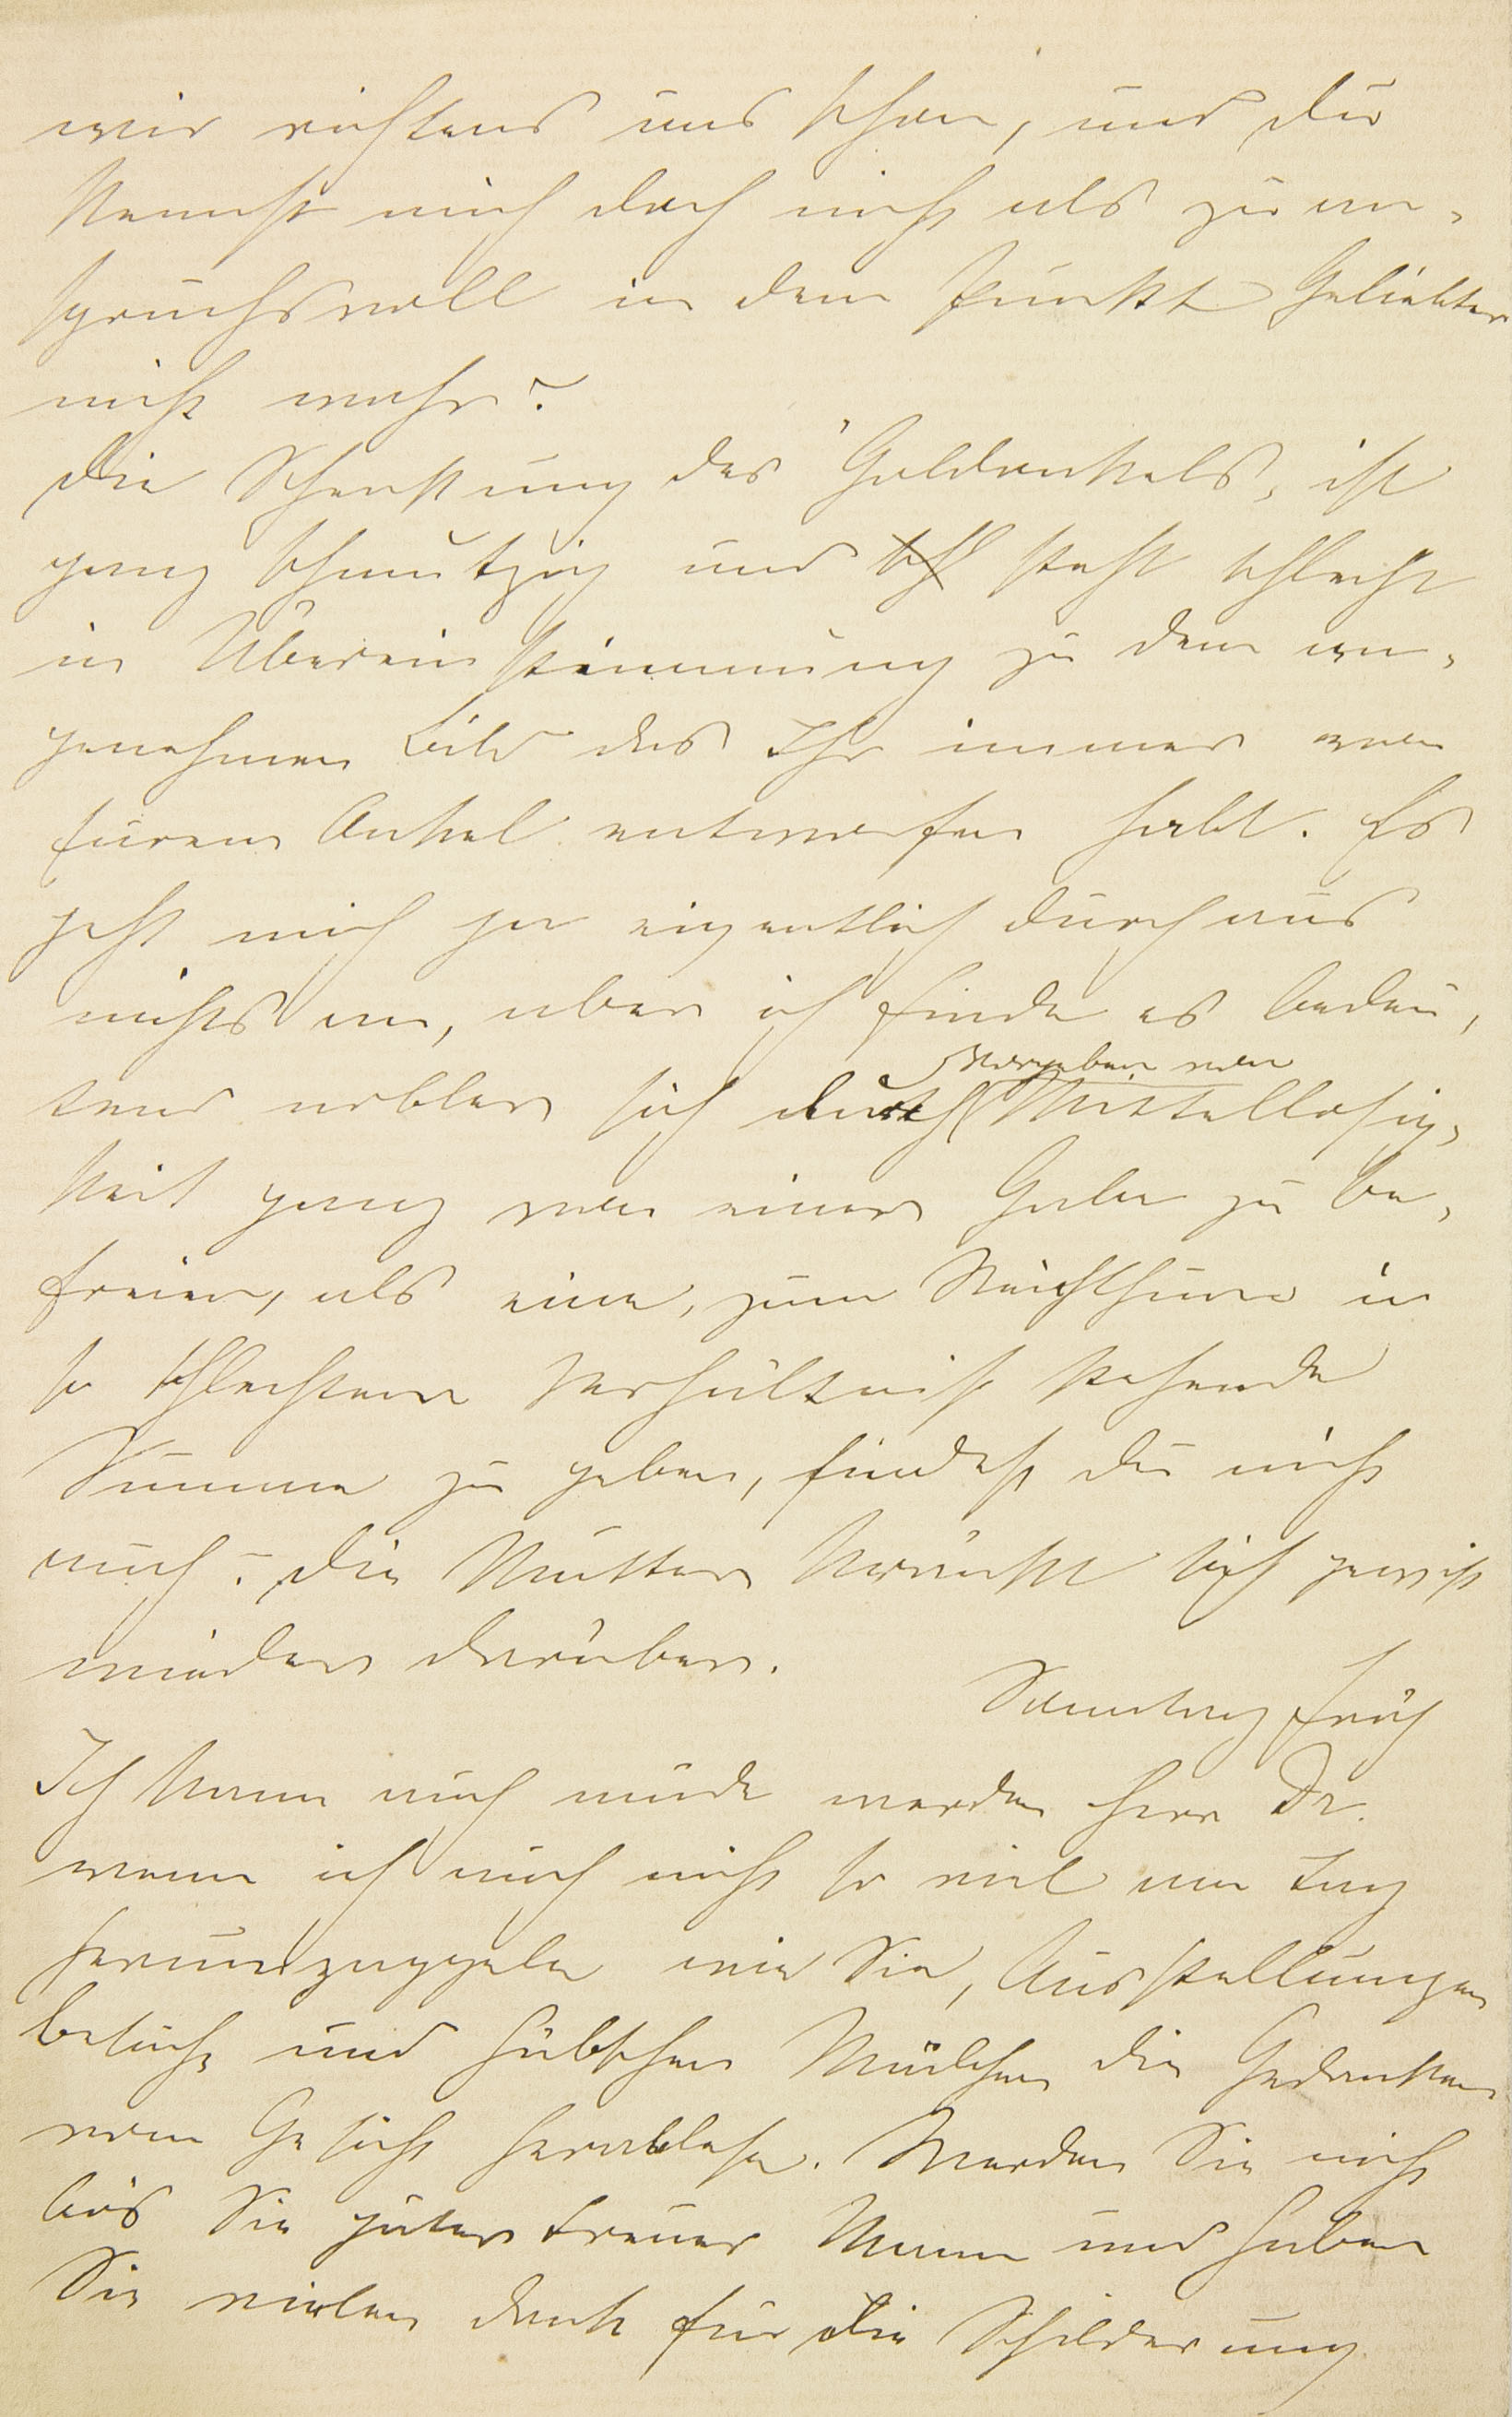 wir richtens uns schon, und Du
kennst mich doch nicht als zu an-
spruchsvoll in dem Punkt Geliebter
nicht wahr?
Die Schenkung des Goldonkels, ist
ganz schmutzig und steht schlecht
in Übereinstimmung zu dem an-
genehmen Bild das Ihr immer von
Eurem Onkel entworfen habt. Es
geht mich ja eigentlich durchaus
nichts an, aber ich finde es bedeu-
tend nobler sich durch Vorgeben von Mittellosig-
keit ganz von einer Gabe zu be-
freien, als eine, zum Reichthum in
so schlechtem Verhältniß stehende
Summe zu geben, findest Du nicht
auch? Die Mutter kränkt sich gewiß
wieder darüber.
Samstag früh
Ich kann auch müde werden Herr Dr.
wenn ich auch nicht so viel am Tag
herumzappele wie Sie, Ausstellungen
besuche und hübschen Mädchen die Gedanken
vom Gesicht herablese. Werden Sie nicht
bös Sie guter treuer Mann und haben
Sie vielen Dank für die Schilderung